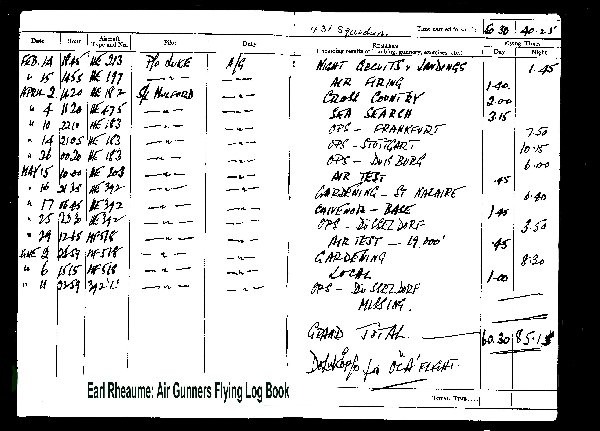 431 Squadron.
Time carried forward:— 50.30 40.25
Date Hour Aircraft Type and No. Pilot Duty
Remarks
(including results of bombing, gunnery, exercises, etc.)
Flying Times
Day Night
FEB. 14 1845 HE 213 P/O DUKE A/G NIGHT CIRCUITS & LANDINGS 1.45
" 15 1455 HE 197 — " — — " — AIR FIRING 1.40
APRIL 2 1420 HE 182 S/L MULFORD — " — CROSS COUNTRY 2.00
" 4 1120 HE 475 — " — — " — SEA SEARCH 3.15
" 10 2210 HE 183 — " — — " — OPS — FRANKFURT 7.50
" 14 2105 HE 183 — " — — " — OPS — STUTTGART
" 26 0020 HE 183 — " — — " — OPS — DUISBURG 6.00
MAY 15 1000 HE — " — — " — AIR TEST .45
" 16 HE — " — — " — GARDENING — ST NAZAIRE
" 17 HE — " — — " — CHIVENOR — BASE 1.45
" 25 HE — " — — " — OPS — DUSSELDORF
" 29 HF 518 — " — — " — AIR TEST — 19,000' .45
JUNE 2 HF 518 — " — — " — GARDENING
" 6 1515 HF 518 — " — — " — LOCAL 1.00
" 11 — " — — " — OPS — DUSSELDORF
MISSING.
GRAND TOTAL 60.30
FLIGHT.
Total Time
Earl Rheaume: Air Gunners Flying Log Book